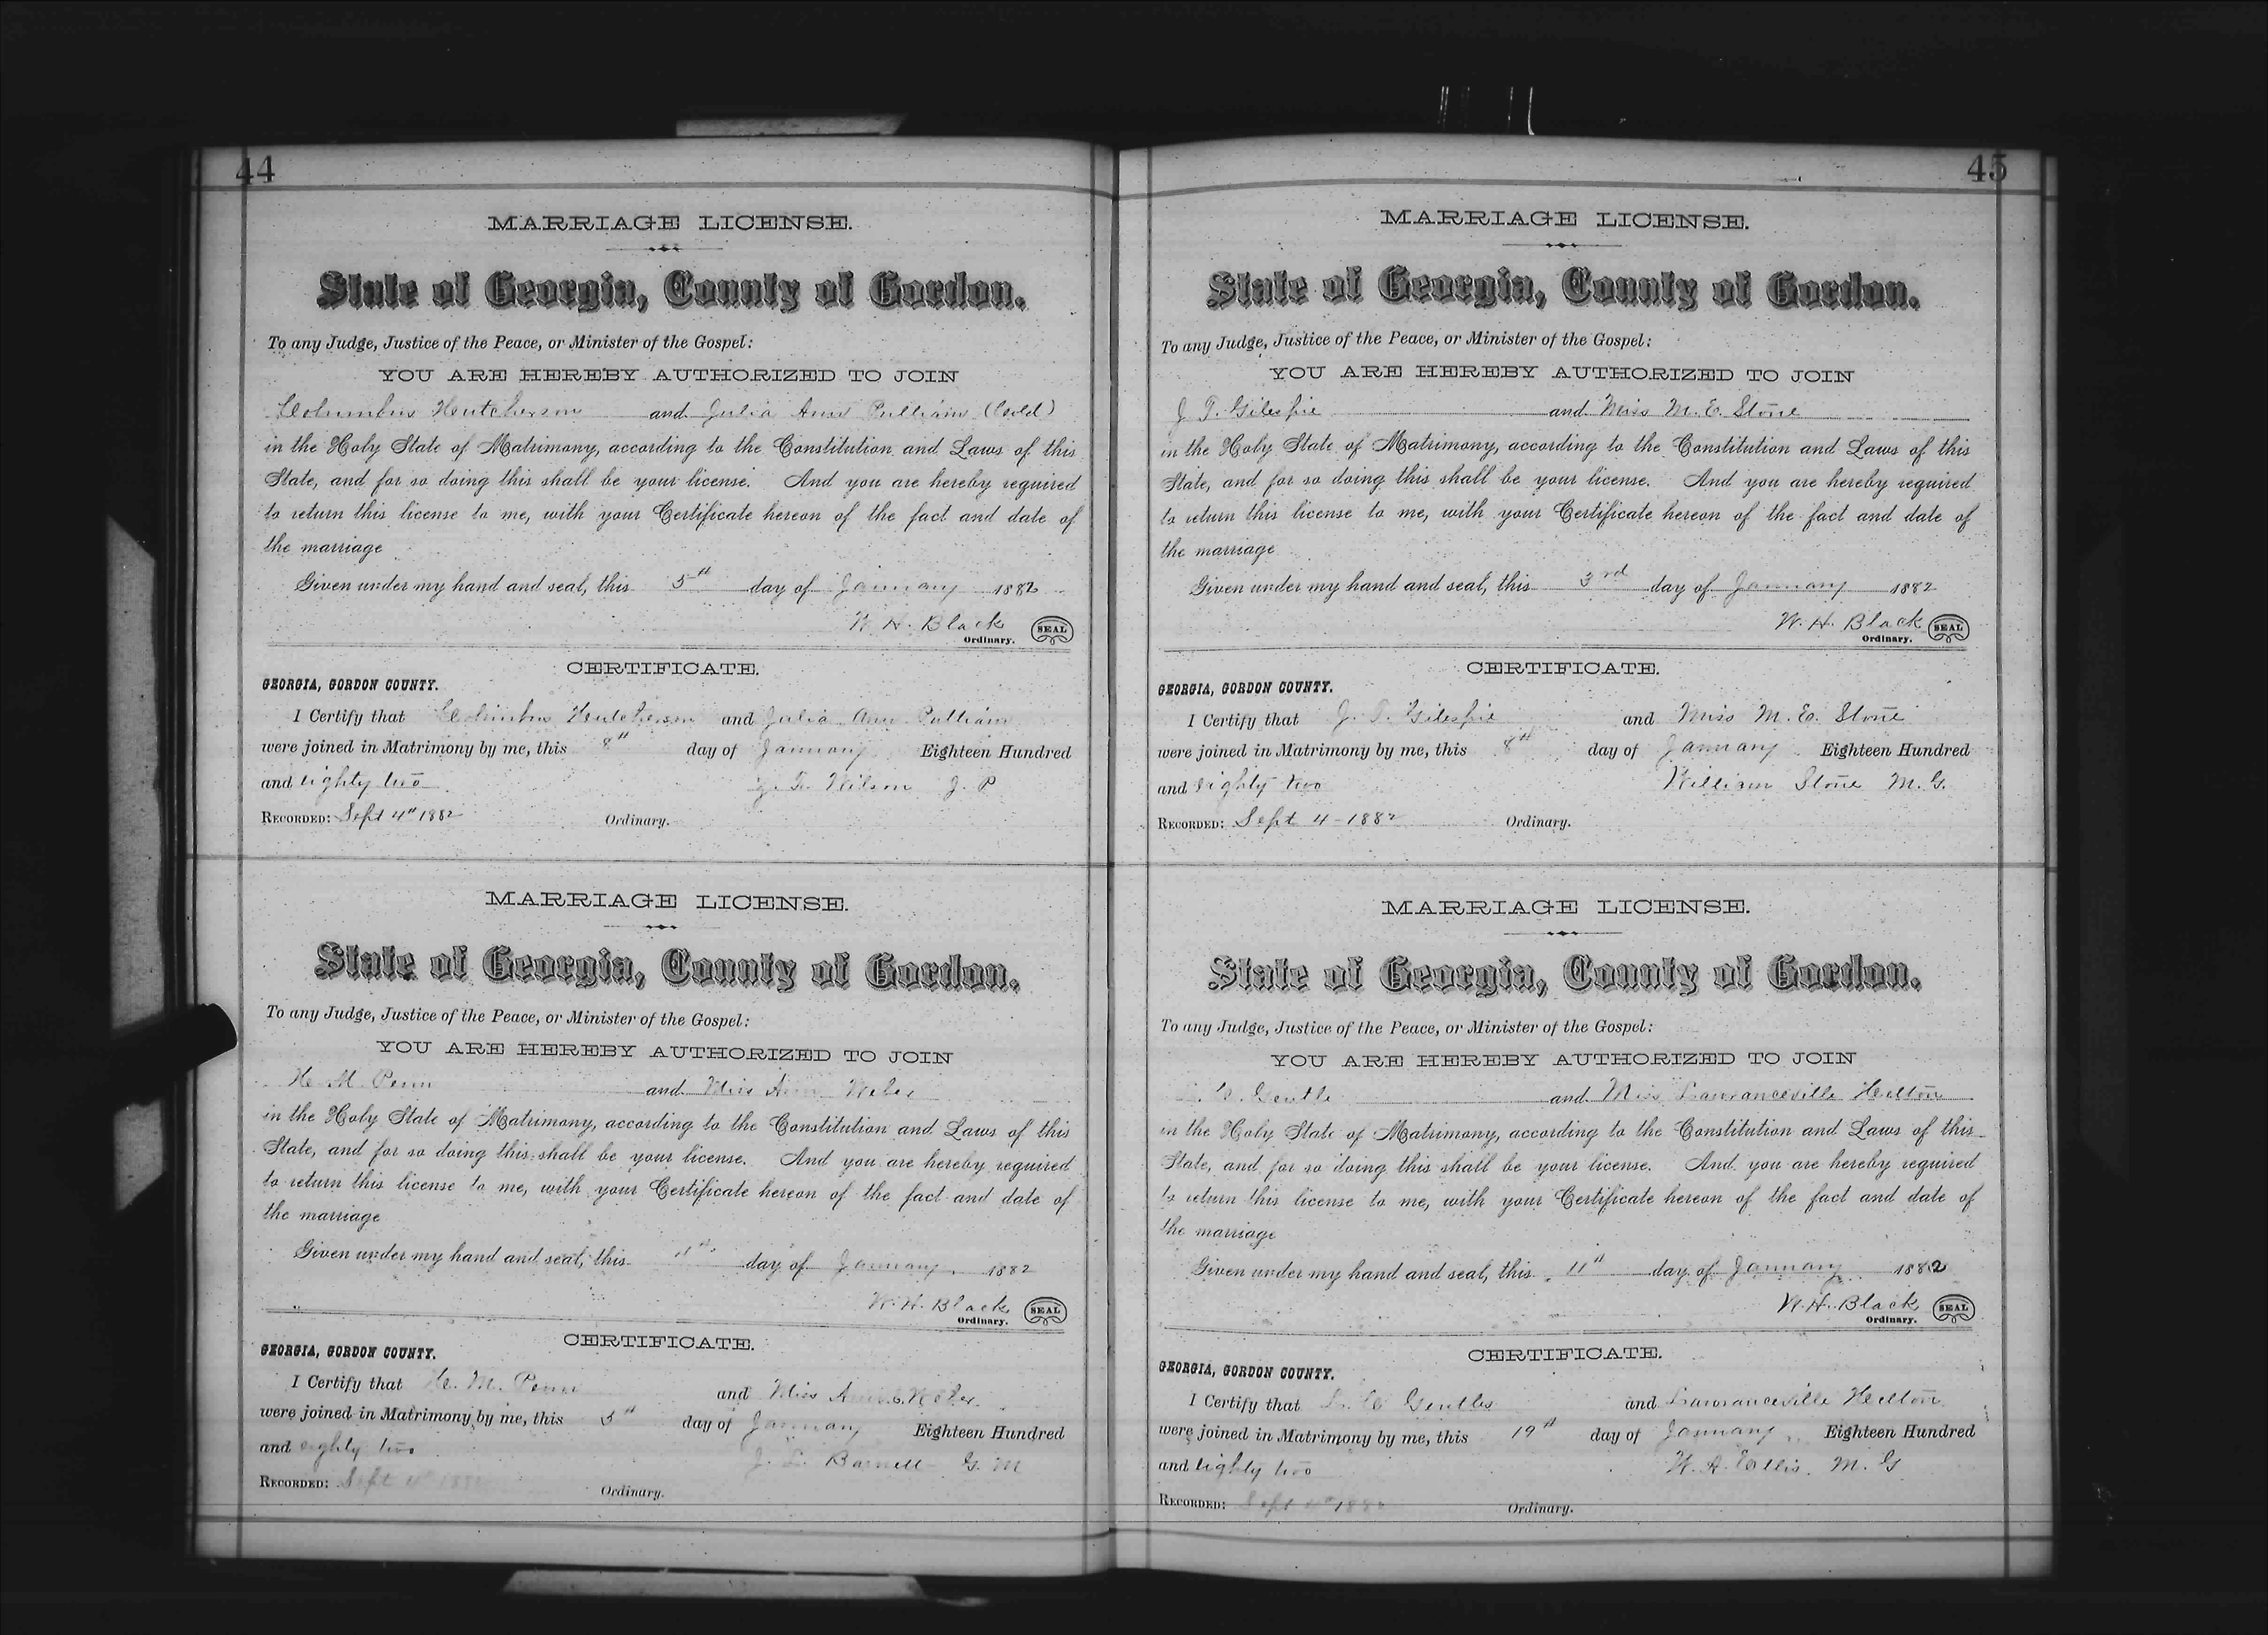 44
MARRIAGE LICENSE.
State of Georgia, County of Gordon.
To any Judge, Justice of the Peace, or Minister of the Gospel:
YOU ARE HEREBY AUTHORIZED TO JOIN
Columbus Hutcherson and Julia Ann Pulliam (Cold)
in the Holy State of Matrimony, according to the Constitution and Laws of this
State, and for so doing this shall be your license. And you are hereby required
to return this license to me, with your Certificate hereon of the fact and date of
the marriage
Given under my hand and seal, this 5th day of January 1882
W. H. Black SEAL
Ordinary.
CERTIFICATE.
GEORGIA, GORDON COUNTY.
I Certify that Columbus Hutcherson and Julia Ann Pulliam
were joined in Matrimony by me, this 8th day of January Eighteen Hundred
and eighty two Wilson J. P
RECORDED: Sept 4th 1882 Ordinary.
MARRIAGE LICENSE.
State of Georgia, County of Gordon.
To any Judge, Justice of the Peace, or Minister of the Gospel:
YOU ARE HEREBY AUTHORIZED TO JOIN
H. M. Penn and Miss
in the Holy State of Matrimony, according to the Constitution and Laws of this
State, and for so doing this shall be your license. And you are hereby required
to return this license to me, with your Certificate hereon of the fact and date of
the marriage
Given under my hand and seal, this day of January 1882
W. H. Black SEAL
Ordinary.
CERTIFICATE.
GEORGIA, GORDON COUNTY.
I Certify that H. M. Penn and Miss
were joined in Matrimony by me, this 5th day of January Eighteen Hundred
and eighty two Barnett G. M
RECORDED: Sept 4th 1882 Ordinary.
45
MARRIAGE LICENSE.
State of Georgia, County of Gordon.
To any Judge, Justice of the Peace, or Minister of the Gospel:
YOU ARE HEREBY AUTHORIZED TO JOIN
J. T. Gilespie and Miss M. E. Stone
in the Holy State of Matrimony, according to the Constitution and Laws of this
State, and for so doing this shall be your license. And you are hereby required
to return this license to me, with your Certificate hereon of the fact and date of
the marriage
Given under my hand and seal, this 3rd day of January 1882
W. H. Black SEAL
Ordinary.
CERTIFICATE.
GEORGIA, GORDON COUNTY.
I Certify that J. T. Gilespie and Miss M. E. Stone
were joined in Matrimony by me, this 8th day of January Eighteen Hundred
and eighty two William Stone M. G.
RECORDED: Sept 4 - 1882 Ordinary.
MARRIAGE LICENSE.
State of Georgia, County of Gordon.
To any Judge, Justice of the Peace, or Minister of the Gospel:
YOU ARE HEREBY AUTHORIZED TO JOIN
Gentle and Miss Lawranceville Helton
in the Holy State of Matrimony, according to the Constitution and Laws of this
State, and for so doing this shall be your license. And you are hereby required
to return this license to me, with your Certificate hereon of the fact and date of
the marriage
Given under my hand and seal, this 11th day of January 1882
W. H. Black SEAL
Ordinary.
CERTIFICATE.
GEORGIA, GORDON COUNTY.
I Certify that Gentles and Lawranceville Helton
were joined in Matrimony by me, this 19th day of January Eighteen Hundred
and eighty two W. A. Ellis. M. G
RECORDED: Sept 4th 1882 Ordinary.